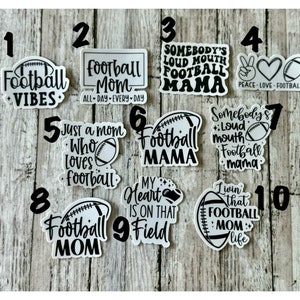 1
Football
VIBES
2
football
MOM
ALL • DAY • EVERY • DAY
3
SOMEBODY'S
LOUD MOUTH
FOOTBALL
MAMA
4
PEACE • LOVE • FOOTBALL
5
Just a mom
who
loves
football
6
Football
MAMA
7
Somebody's
Loud
mouth
Football
mama
8
Football
MOM
9
MY
Heart
IS ON THAT
Field
10
Livin'
that
FOOTBALL
MOM
life